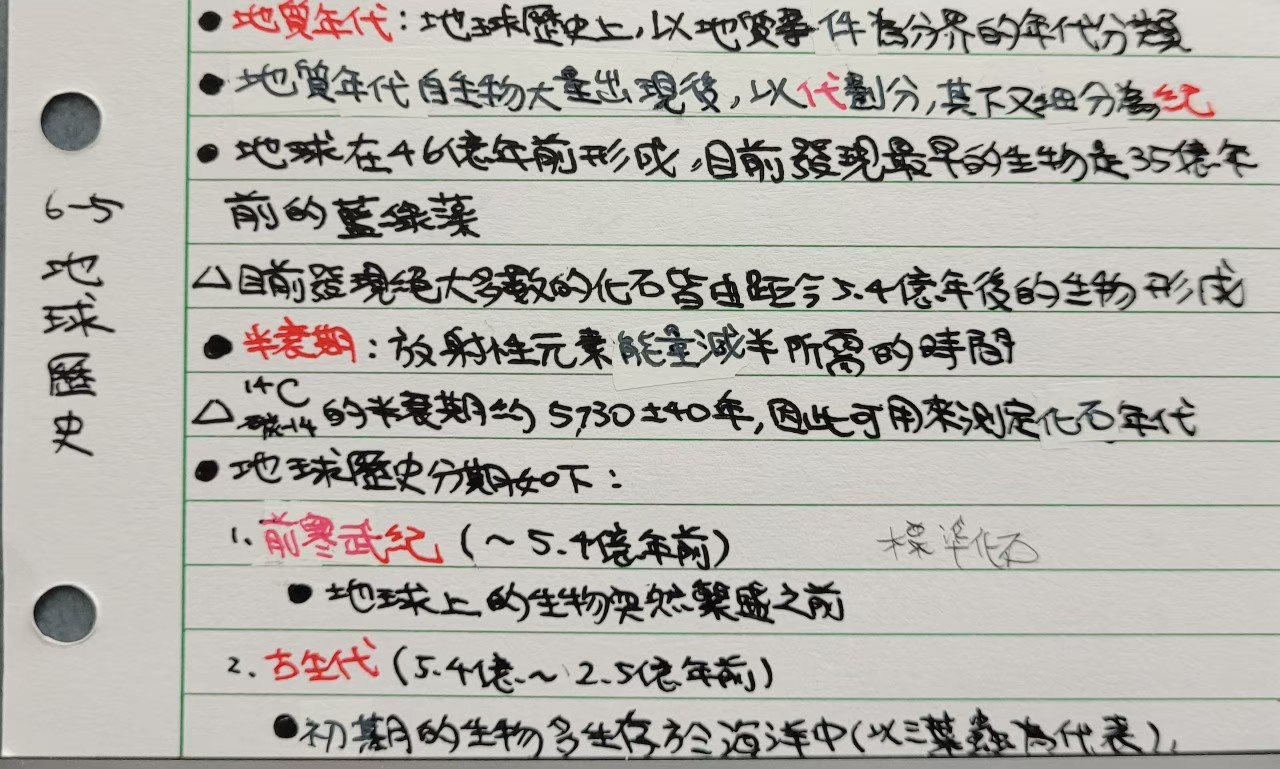 6-5 地球歷史
● 地質年代：地球歷史上，以地質事件為分界的年代分類
● 地質年代自生物大量出現後，以代劃分，其下又細分為紀
● 地球在46億年前形成，目前發現最早的生物是35億年
前的藍綠藻
△目前發現絕大多數的化石皆由距今5.4億年後的生物形成
● 半衰期：放射性元素能量減半所需的時間
△ ¹⁴C 碳-14 的半衰期約5,730±40年，因此可用來測定化石年代
● 地球歷史分期如下：
1. 前寒武紀（～5.4億年前） 標準化石
● 地球上的生物突然繁盛之前
2. 古生代（5.4億～2.5億年前）
● 初期的生物多生存於海洋中（以三葉蟲為代表），